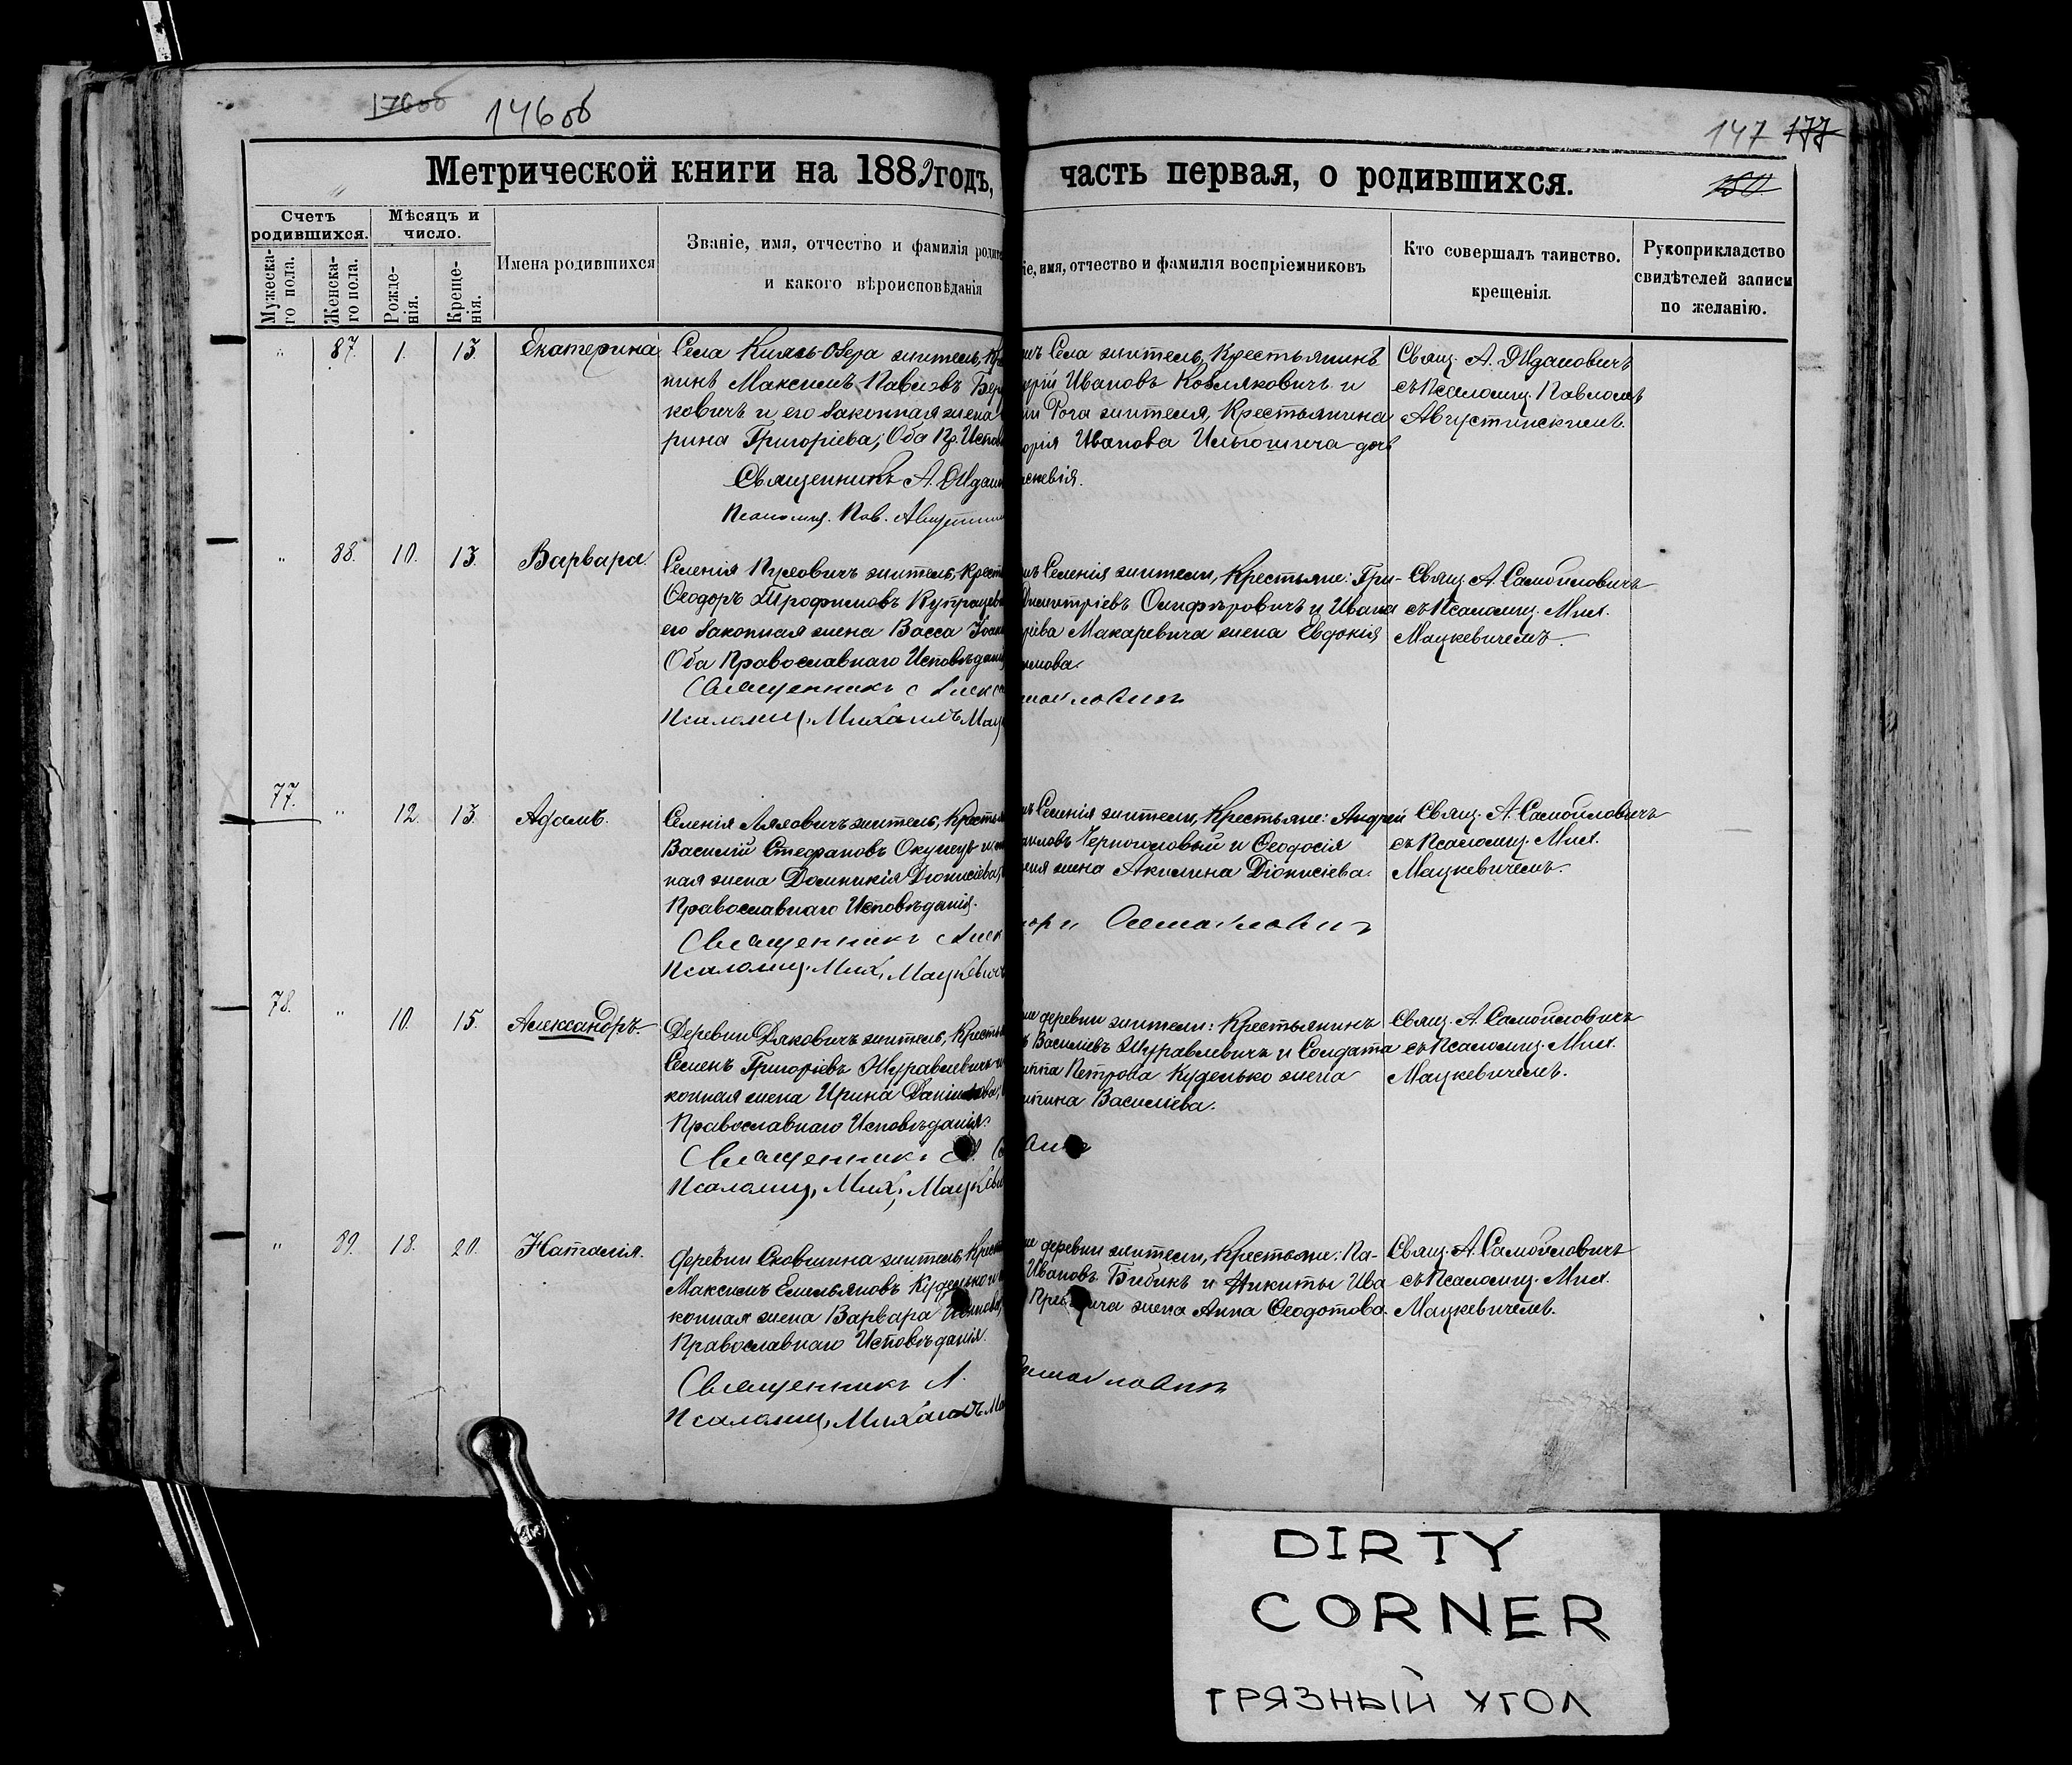 176об 146об
147 177
Метрической книги на 1889 годъ, часть первая, о родившихся.
150.
Счетъ родившихся.
Мѣсяцъ и число.
Мужеска-го пола.
Женска-го пола.
Рожде-нія.
Креще-нія.
Имена родившихся
Званіе, имя, отчество и фамилія родите
и какого вѣроисповѣданія
іе, имя, отчество и фамилія воспріемниковъ
Кто совершалъ таинство.
крещенія.
Рукоприкладство
свидѣтелей записи
по желанію.
„ 87. 1. 13. Екатерина
Села Князь-Озера житель, Кр
нинъ Максимъ Павловъ Бер
ковичъ и его законная жена
рина Григоріева; Оба Пр. Испов
Священникъ А. Ждан
Псаломщ. Пав. Августин
Села житель, Крестьянинъ
рій Ивановъ Козляковичъ и
Рога жителя, Крестьянина
орія Иванова Ильюшича дочь
скевія.
Свящ. А. Ждановичъ
съ Псаломщ. Павломъ
Августинскимъ.
„ 88. 10. 13. Варвара.
Селенія Пуховичъ житель, Крест
Ѳеодоръ Трофимовъ Купрацев
его законная жена Васса Іоак
Оба Православнаго Исповѣдані
Священникъ Алекс
Псаломщ. Михаилъ Мац
Селенія жители, Крестьяне: Гри-
Димитріевъ Онифровичъ и Ивана
ріева Макаревича жена Евдокія
имова.
мойловичъ
Свящ. А. Самойловичъ
съ Псаломщ. Мих.
Мацкевичемъ.
77. „ 12. 13. Адамъ.
Селенія Ляховичъ житель, Крестья
Василій Стефановъ Окунецъ и
ная жена Домникія Діонисіева,
Православнаго Исповѣданія.
Священникъ Алек
Псаломщ. Мих. Мацкевич
Селенія жители, Крестьяне: Андрей
аиловъ Черноголовый и Ѳеодосія
жена Акилина Діонисіева.
Самойловичъ
Свящ. А. Самойловичъ
съ Псаломщ. Мих.
Мацкевичемъ.
78. „ 10. 15. Александръ.
Деревни Дяковичъ житель, Кресть
Семенъ Григоріевъ Журавлевичъ и
конная жена Ирина Даніилова,
Православнаго Исповѣданія.
Священникъ А. С
Псаломщ. Мих. Мацкеви
деревни жители: Крестьянинъ
Василіевъ Журавлевичъ и Солдата
иппа Петрова Куденько жена
Василіева.
Свящ. А. Самойловичъ
съ Псаломщ. Мих.
Мацкевичемъ.
„ 89. 18. 20. Наталія.
Деревни Сковшина житель, Крест
Максимъ Емельяновъ Куденько и
конная жена Варвара
Православнаго Исповѣданія.
Священникъ А.
Псаломщ. Михаилъ Ма
деревни жители, Крестьяне: Па-
Ивановъ Бибикъ и Никиты Ива
жена Анна Ѳеодотова.
Самойловичъ
Свящ. А. Самойловичъ
съ Псаломщ. Мих.
Мацкевичемъ.
DIRTY
CORNER
ГРЯЗНЫЙ УГОЛ